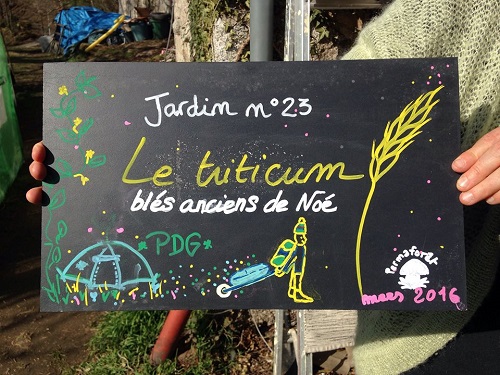 Jardin n°23
Le triticum
blés anciens de Noé
PDG
Permaforêt
mars 2016